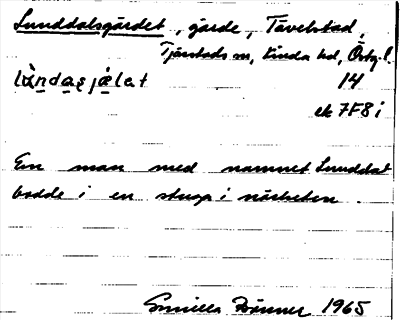 Lunddalsgärdet, gärde, Tävelstad,
Tjärstads sn, Kinda hd, Östg.l.
14
ek 7F8i
En man med namnet Lunddal
bodde i en stuga i närheten.
Gunilla Bränner 1965